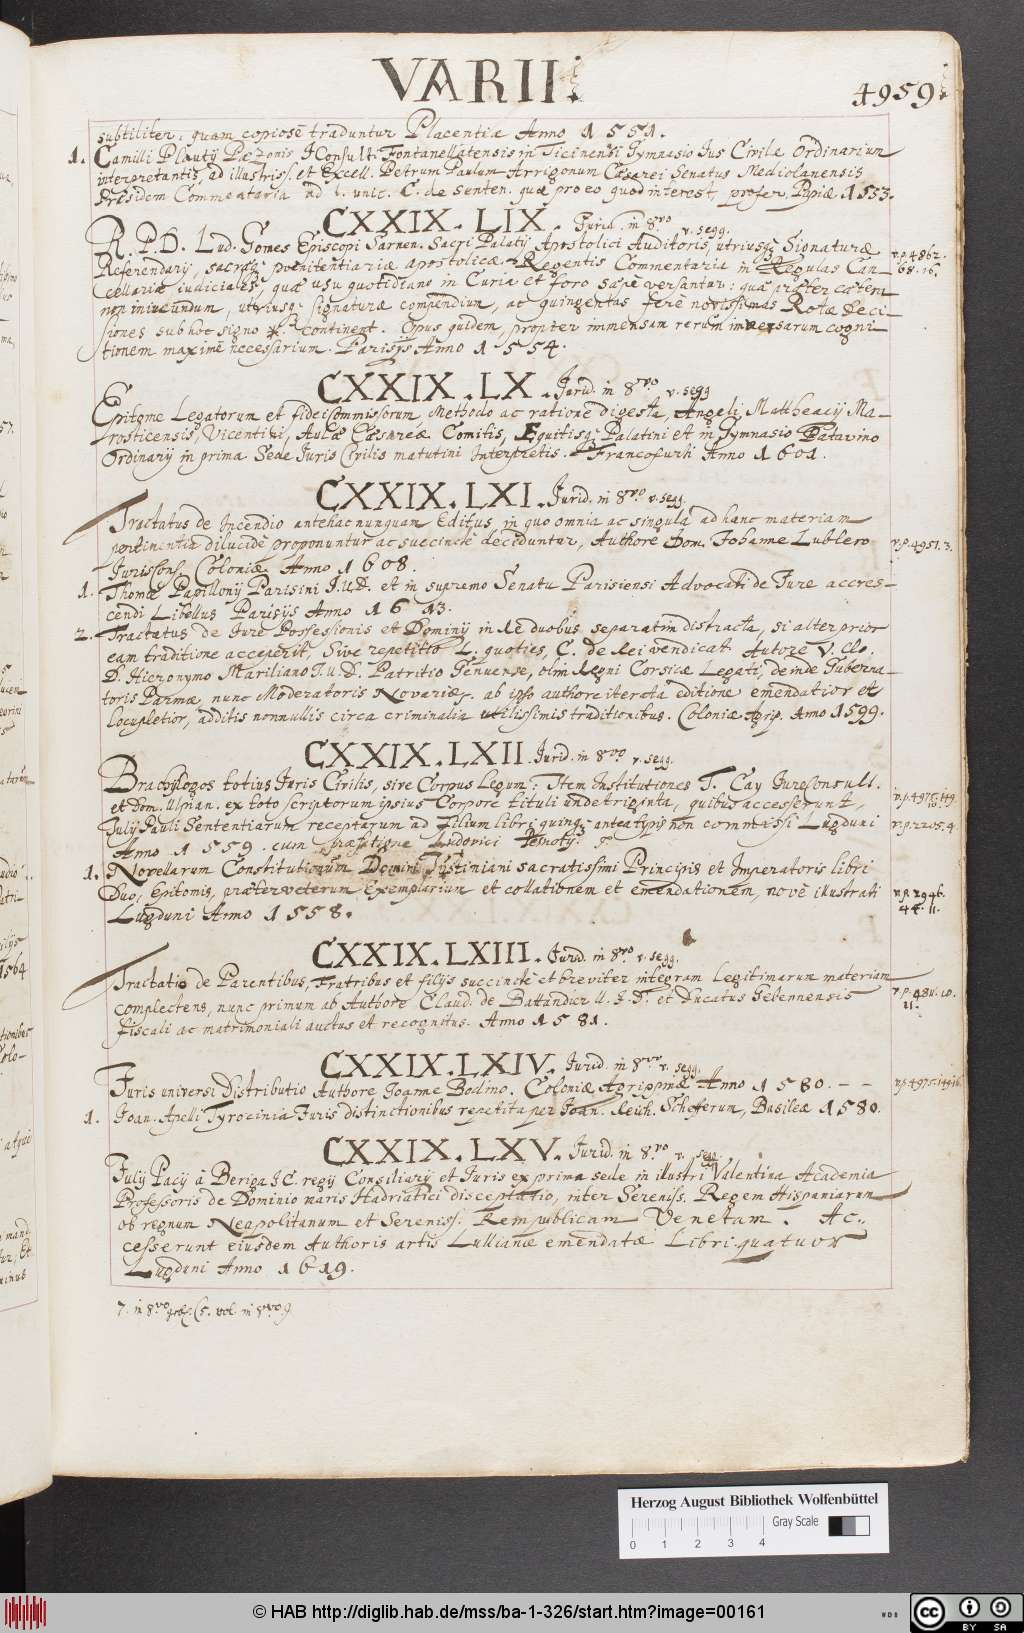 VARII.
4959.
subtiliter, quam copiosè traduntur Placentiæ Anno 1551.
1. Camilli Plautij Pæzonis, IConsult. Fontanellatensis in Ticinensi Gymnasio Jus Civile Ordinarium
interpretantis, ad illustriss. et Excell. Petrum Paulum Arrigonum Cæsarei Senatus Mediolanensis
Præsidem Commentaria ad l. unic. C. de senten. quæ pro eo quod interest, profer. Papiæ 1533.
CXXIX. LIX. Jurid. in 8vo. v. segg.
R. P. D. Lud. Gomes Episcopi Sarnen. Sacri Palatij Apostolici Auditoris, utriusq; Signaturæ
Referendarij, sacræq; pœnitentiariæ apostolicæ Regentis Commentaria in Regulas Can-
cellariæ iudiciales, quæ usu quotidiano in Curia et foro sæpe versantur: quæ præter cætera
non iniucundum, utriusq; signaturæ compendium, ac quingentas ferè novissimas Rotæ deci-
siones sub hoc signo * continent. Opus quidem, propter immensam rerum inversarum cogni-
tionem maximè necessarium. Parisijs Anno 1554.
v.p. 4862.
68. 16.
CXXIX. LX. Jurid. in 8vo v. segg
Epitome Legatorum et fideicommissorum Methodo ac ratione digesta, Angeli Mattheacij Ma-
rosticensis, Vicentini, Aulæ Cæsareæ Comitis, Equitisq; Palatini et in Gymnasio Patavino
Ordinarij in prima Sede Juris Civilis matutini Interpretis. Francofurti Anno 1601.
CXXIX. LXI. Jurid. in 8vo. v. segg.
Tractatus de Incendio antehac nunquam Editus, in quo omnia ac singula ad hanc materiam
pertinentia dilucidè proponuntur ac succinctè deciduntur, Authore Dom. Johanne Lublero
Jurisconf. Coloniæ Anno 1608.
v.p. 4951. 3.
1. Thomæ Papillonij Parisini J.U.D. et in supremo Senatu Parisiensi Advocati de Jure accres-
cendi Libellus Parisijs Anno 1613.
2. Tractatus de Jure Possessionis et Dominij in Re duobus separatim distracta, si alter prior
eam traditione acceperit, Sive repetitio L. quoties, C. de Rei vendicat. Autore V. Clo.
D. Hieronymo Mariliano J.U.D. Patritio Genuense, olim Regni Corsicæ Legati, deinde Guberna-
toris Parmæ, nunc Moderatoris Novariæ, ab ipso authore iterata editione emendatior et
locupletior, additis nonnullis circa criminalia utilissimis traditionibus. Coloniæ Agrip. Anno 1599.
CXXIX. LXII. Jurid. in 8vo v. segg.
Brachylogos totius Juris Civilis, sive Corpus Legum: Item Institutiones T. Caij Jureconsult.
et Dom. Ulpian. ex toto scriptorum ipsius Corpore tituli undetriginta, quibus accesserunt,
Julij Pauli Sententiarum receptarum ad Filium libri quinq; antea typis non commissi Lugduni
Anno 1559. cum præfatione Ludovici
v.p. 2205. 4.
1. Novellarum Constitutionum Domini Justiniani sacratissimi Principis et Imperatoris libri
Duo, Epitomis, præter veterum Exemplarium et collationem et emendationem, novè illustrati
Lugduni Anno 1558.
v.p. 2946.
44. 11.
CXXIX. LXIII. Jurid. in 8vo v. segg.
Tractatio de Parentibus, Fratribus et filijs succinctè et breviter integram Legitimarum materiam
complectens, nunc primum ab Authore Claud. de Battandier U. J. D. et Ducatus Gebennensis
fiscali ac matrimoniali auctus et recognitus. Anno 1581.
CXXIX. LXIV. Jurid. in 8vo v. segg.
Juris universi Distributio Authore Joanne Bodino. Coloniæ Agrippinæ Anno 1580. - -
1. Joan. Apeli Tyrocinia Juris distinctionibus repetita per Joan. Reich. Schefferum, Basileæ 1580.
CXXIX. LXV. Jurid. in 8vo v. segg.
Julij Pacij à Beriga JC. regij Consiliarij et Juris ex prima sede in illustri Valentina Academia
Professoris de Dominio maris Hadriatici disceptatio, inter Sereniss. Regem Hispaniarum
ob regnum Neapolitanum et Sereniss. Rempublicam Venetam. Ac-
cesserunt eiusdem Authoris artis Lullianæ emendatæ Libri quatuor
Lugduni Anno 1619.
Herzog August Bibliothek Wolfenbüttel
Gray Scale
0 1 2 3 4
© HAB http://diglib.hab.de/mss/ba-1-326/start.htm?image=00161
WDB
CC BY SA